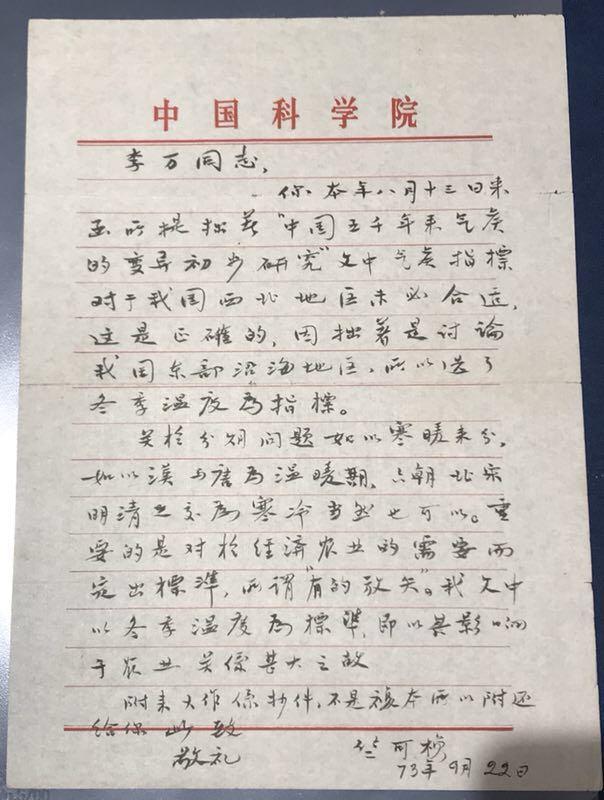 中国科学院
李万同志，
你本年八月十三日来
函所提拙著“中国五千年来气候
的变异初步研究”文中气候指標
对于我国西北地区未必合适，
这是正確的，因拙著是讨論
我国东部沿海地区，所以选了
冬季温度為指標。
关於分期问题如以寒暖来分，
如以漢与唐為温暖期，六朝北宋
明清之交為寒冷当然也可以。重
要的是对於经济农业的需要而
定出標準，所谓“有的放矢”。我文中
以冬季温度為標準，即以其影响
于农业关係甚大之故
附来大作係抄件，不是複本所以附还
给你 此致
敬礼
竺可桢
73年9月22日